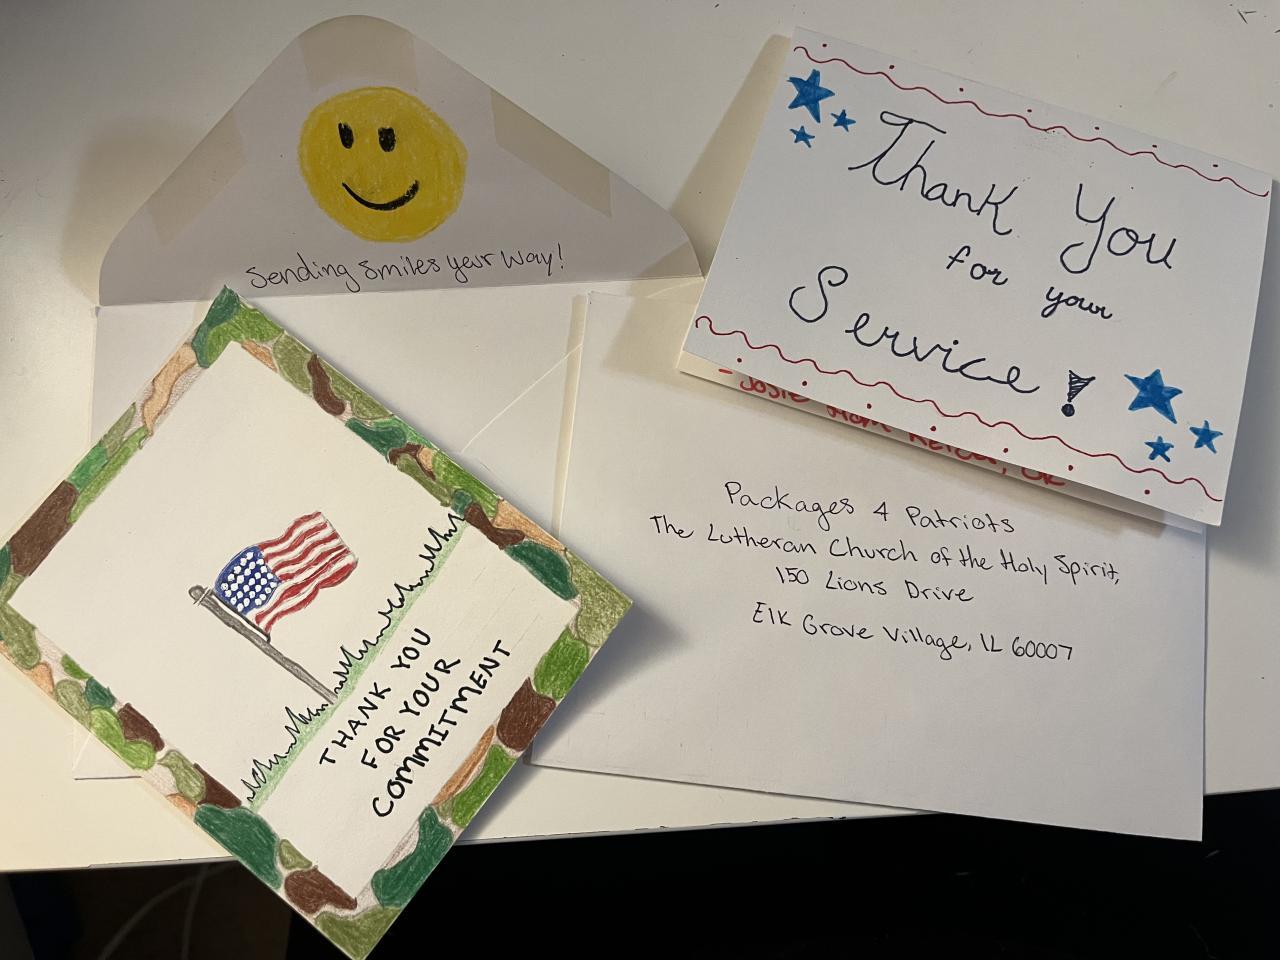 Sending smiles your way!
Thank You
for your
Service!
THANK YOU
FOR YOUR
COMMITMENT
Packages 4 Patriots
The Lutheran Church of the Holy Spirit,
150 Lions Drive
Elk Grove Village, IL 60007